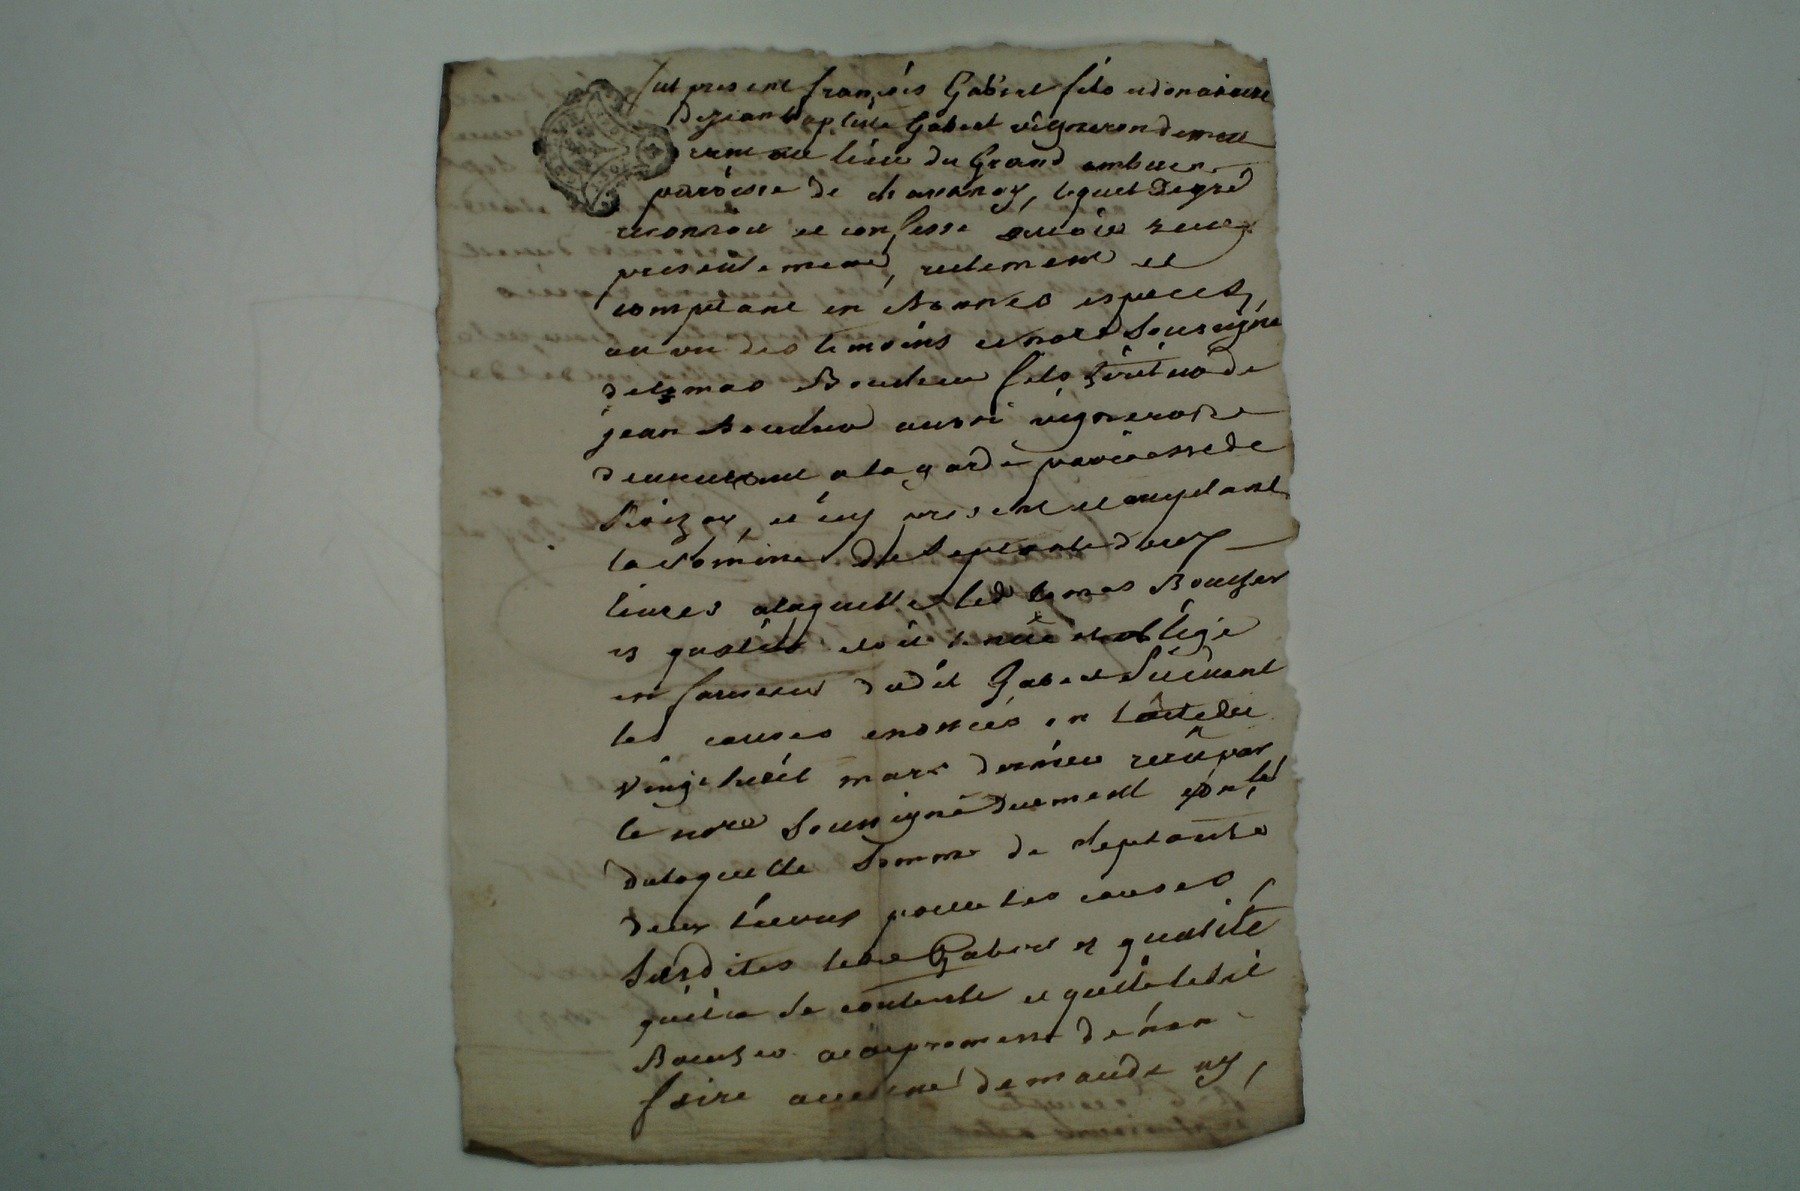 fut present françois Gabert fils et donataire
de jean baptiste Gabert vigneron demeu
rant au lieu du Grand embuen
paroisse de chavanay, lequel de gré
reconnoit et confesse avoir receu
presentement, reelement et
comptant en bonnes especes,
au vu des temoins et no.re Soussigné
de tomas Boucher fils de
jean boucher aussi vigneron
demeurant a la garde paroisse de
Roizey, icy present et acceptant
la Somme de Septante deux
livres a laquelle led tomas Boucher
en qualité etoit tenu et obligé
en faveur dudit Gabert Suivant
les causes enoncés en l'acte du
vingt huit mars dernier receu par
le no.re Soussigné duement
de laquelle Somme de Septante
deux livres pour les causes,
Susdites ledit Gabert en qualité
qu'il se contente et quitte ledit
Boucher avec promesse de n'en
faire aucune demande ny,